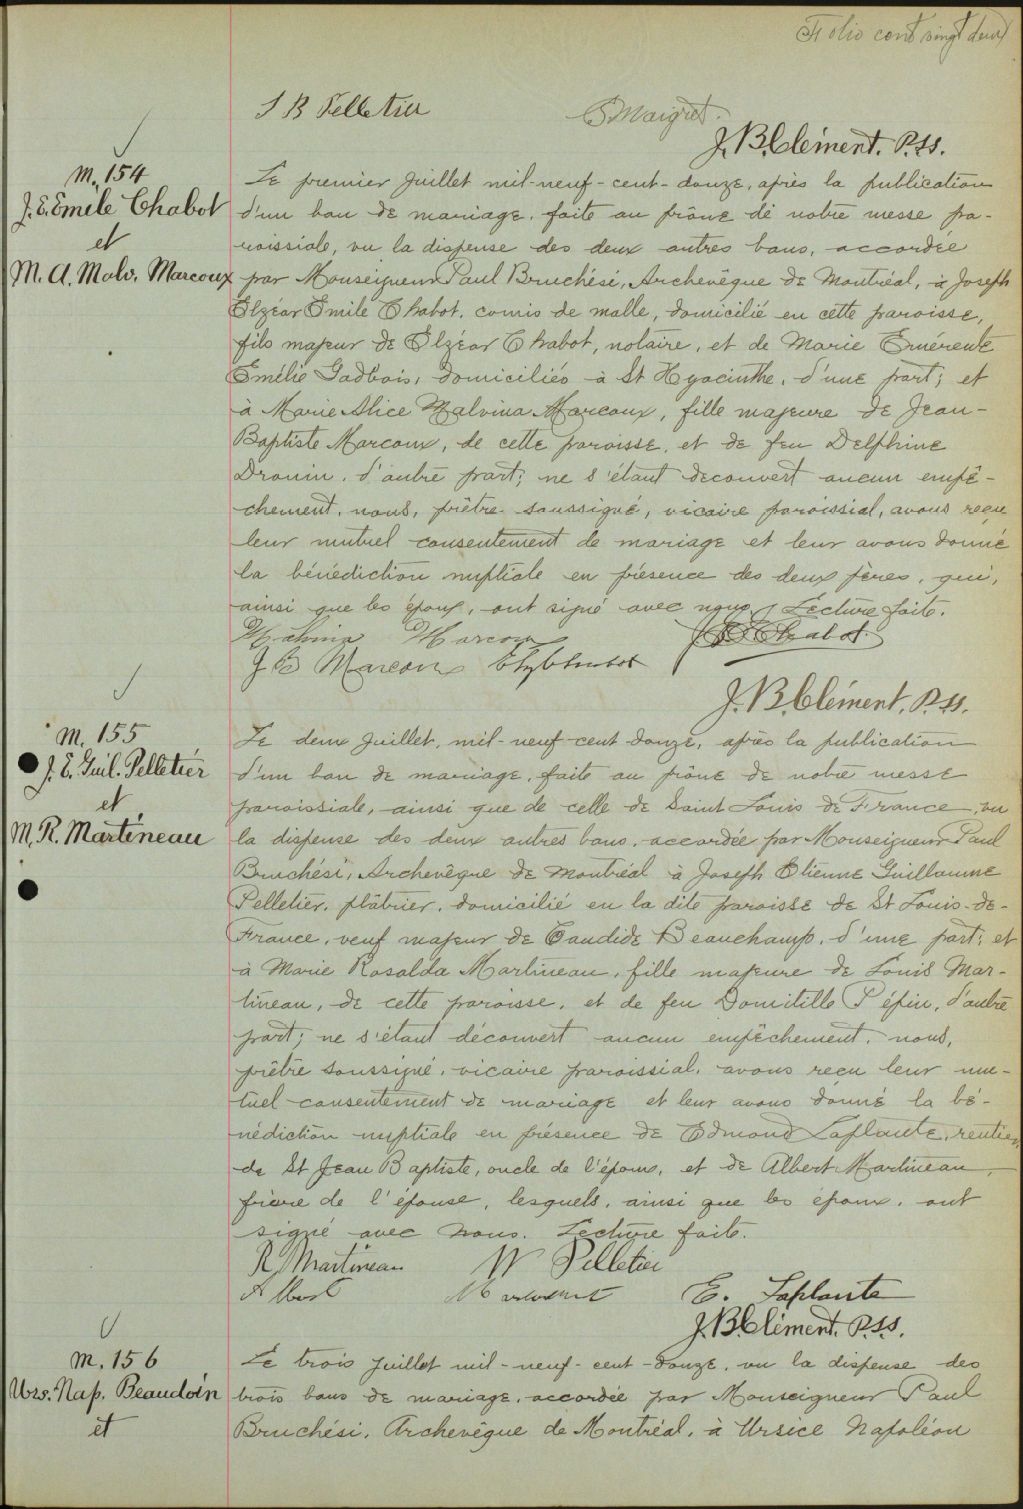 Folio cent vingt deux
J B Pelletier
E Maigret.
J. B. Clément. P.S.S.
M. 154
J. E. Emile Chabot
et
M. A. Malv. Marcoux
Le premier juillet mil-neuf-cent-douze, après la publication
d'un ban de mariage, faite au prône de notre messe pa-
roissiale, vu la dispense des deux autres bans, accordée
par Monseigneur Paul Bruchési, Archevêque de Montréal, à Joseph
Elzéar Emile Chabot, comis de malle, domicilié en cette paroisse,
fils majeur de Elzéar Chabot, notaire, et de Marie Emérente
Emélie Gadbois, domiciliés à St Hyacinthe, d'une part; et
à Marie Alice Malvina Marcoux, fille majeure de Jean-
Baptiste Marcoux, de cette paroisse, et de feu Delphine
Drouin, d'autre part; ne s'étant decouvert aucun empê-
chement, nous, prêtre soussigné, vicaire paroissial, avons reçu
leur mutuel consentement de mariage et leur avons donné
la bénédiction nuptiale en présence des deux pères, qui,
ainsi que les époux, ont signé avec nous. Lecture faite.
Malvina Marcoux
J E E Chabot
J B Marcoux Elz Chabot
J. B. Clément. P.S.S.
M. 155
J. E. Guil. Pelletier
et
M. R. Martineau
Le deux juillet, mil-neuf-cent-douze, après la publication
d'un ban de mariage, faite au prône de notre messe
paroissiale, ainsi que de celle de Saint Louis de France, vu
la dispense des deux autres bans, accordée par Monseigneur Paul
Bruchési, Archevêque de Montréal à Joseph Etienne Guillaume
Pelletier, plâtrier, domicilié en la dite paroisse de St Louis-de-
France, veuf majeur de Candide Beauchamp, d'une part; et
à Marie Rosalda Martineau, fille majeure de Louis Mar-
tineau, de cette paroisse, et de feu Domitille Pépin, d'autre
part; ne s'étant découvert aucun empêchement, nous,
prêtre soussigné, vicaire paroissial, avons reçu leur mu-
tuel consentement de mariage et leur avons donné la bé-
nédiction nuptiale en présence de Edmond Laplante, rentier
de St Jean Baptiste, oncle de l'époux, et de Albert Martineau,
frère de l'épouse, lesquels, ainsi que les époux, ont
signé avec nous. Lecture faite.
R Martineau W Pelletier
Albert Martineau E. Laplante
J. B. Clément. P.S.S.
M. 156
Urs. Nap. Beaudoin
et
Le trois juillet mil-neuf-cent-douze, vu la dispense des
trois bans de mariage, accordée par Monseigneur Paul
Bruchési, Archevêque de Montréal, à Ursice Napoléon